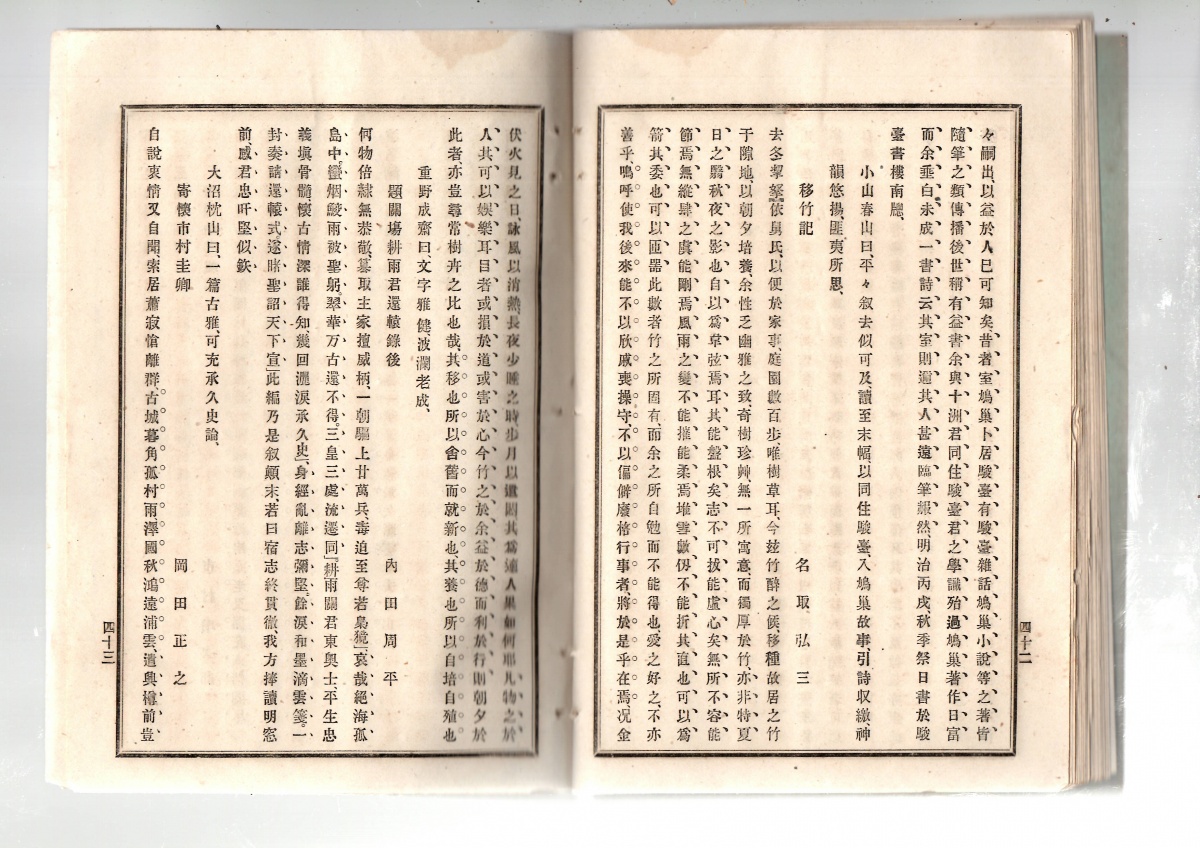 々嗣出、以益於人已可知矣、昔者室鳩巢卜居駿臺有駿臺雜話鳩巢小說等之著皆
隨筆之類傳播後世稱有益書余與十洲君同住駿臺君之學識殆過鳩巢著作日富
而余垂白未成一書詩云其室則邇其人甚遠臨筆赧然、明治丙戌、秋季祭日書於駿
臺書樓南牕、
小山春山曰、平々叙去似可及、讀至末幅以同住駿臺、入鳩巢故事、引詩収繳神
韻悠揚、匪夷所思、
移竹記
名取弘三
去冬挈孥依舅氏、以便於家事、庭園數百步、唯樹草耳、今玆竹醉之候移種故居之竹
于隙地以朝夕培養、余性乏幽雅之致奇樹珍艸、無一所寓意、而獨厚於竹、亦非特夏
日之翳秋夜之影也、自以爲韋弦焉耳、其能盤根矣志不可拔能虛心矣無所不容能
節焉無縱肆之虞能剛焉風雨之變不能摧能柔焉堆雪數仞不能折其直也可以爲
箭其委也可以匝器此數者竹之所固有、而余之所自勉而不能得也愛之好之、不亦
善乎、嗚呼使我後來能不以欣戚喪操守、不以偏僻廢格行事者、將於是乎在焉况金
四十二
伏火見之日、詠風以消熱、長夜少睡之時、步月以遣悶其爲適人果如何耶凡物之於
人、其可以娛樂耳目者或損於道或害於心今竹之於余益於德而利於行、則朝夕於
此者、亦豈尋常樹卉之比也哉、其移也所以舍舊而就新也、其養也所以自培自殖也
重野成齋曰、文字雅健、波瀾老成、
題關場耕雨君還轅錄後
內田周平
何物倍隷無恭敬、簒取主家擅威柄、一朝驅上廿萬兵、毒迫至尊若梟獍、哀哉絕海孤
島中、蠻烟鯪雨被聖躬、翠華万古還不得、三皇三處流遷同、耕雨關君東奧士平生忠
義塡骨髓、懷古情深誰得知、幾回灑淚承久史、身經亂離志彌堅、餘淚和墨滴雲箋、一
封奏請還轅式遂賭聖詔天下宣、此編乃是叙顛末、若曰宿志終貫徹我方捧讀明窓
前、感君忠肝堅似鉄、
大沼枕山曰、一篇古雅、可充承久史論、
寄懷市村圭卿
岡田正之
自說衷情又自聞、索居蕭寂愴離群、古城暮角孤村雨、澤國秋鴻遠浦雲、遣興樽前豈
四十三